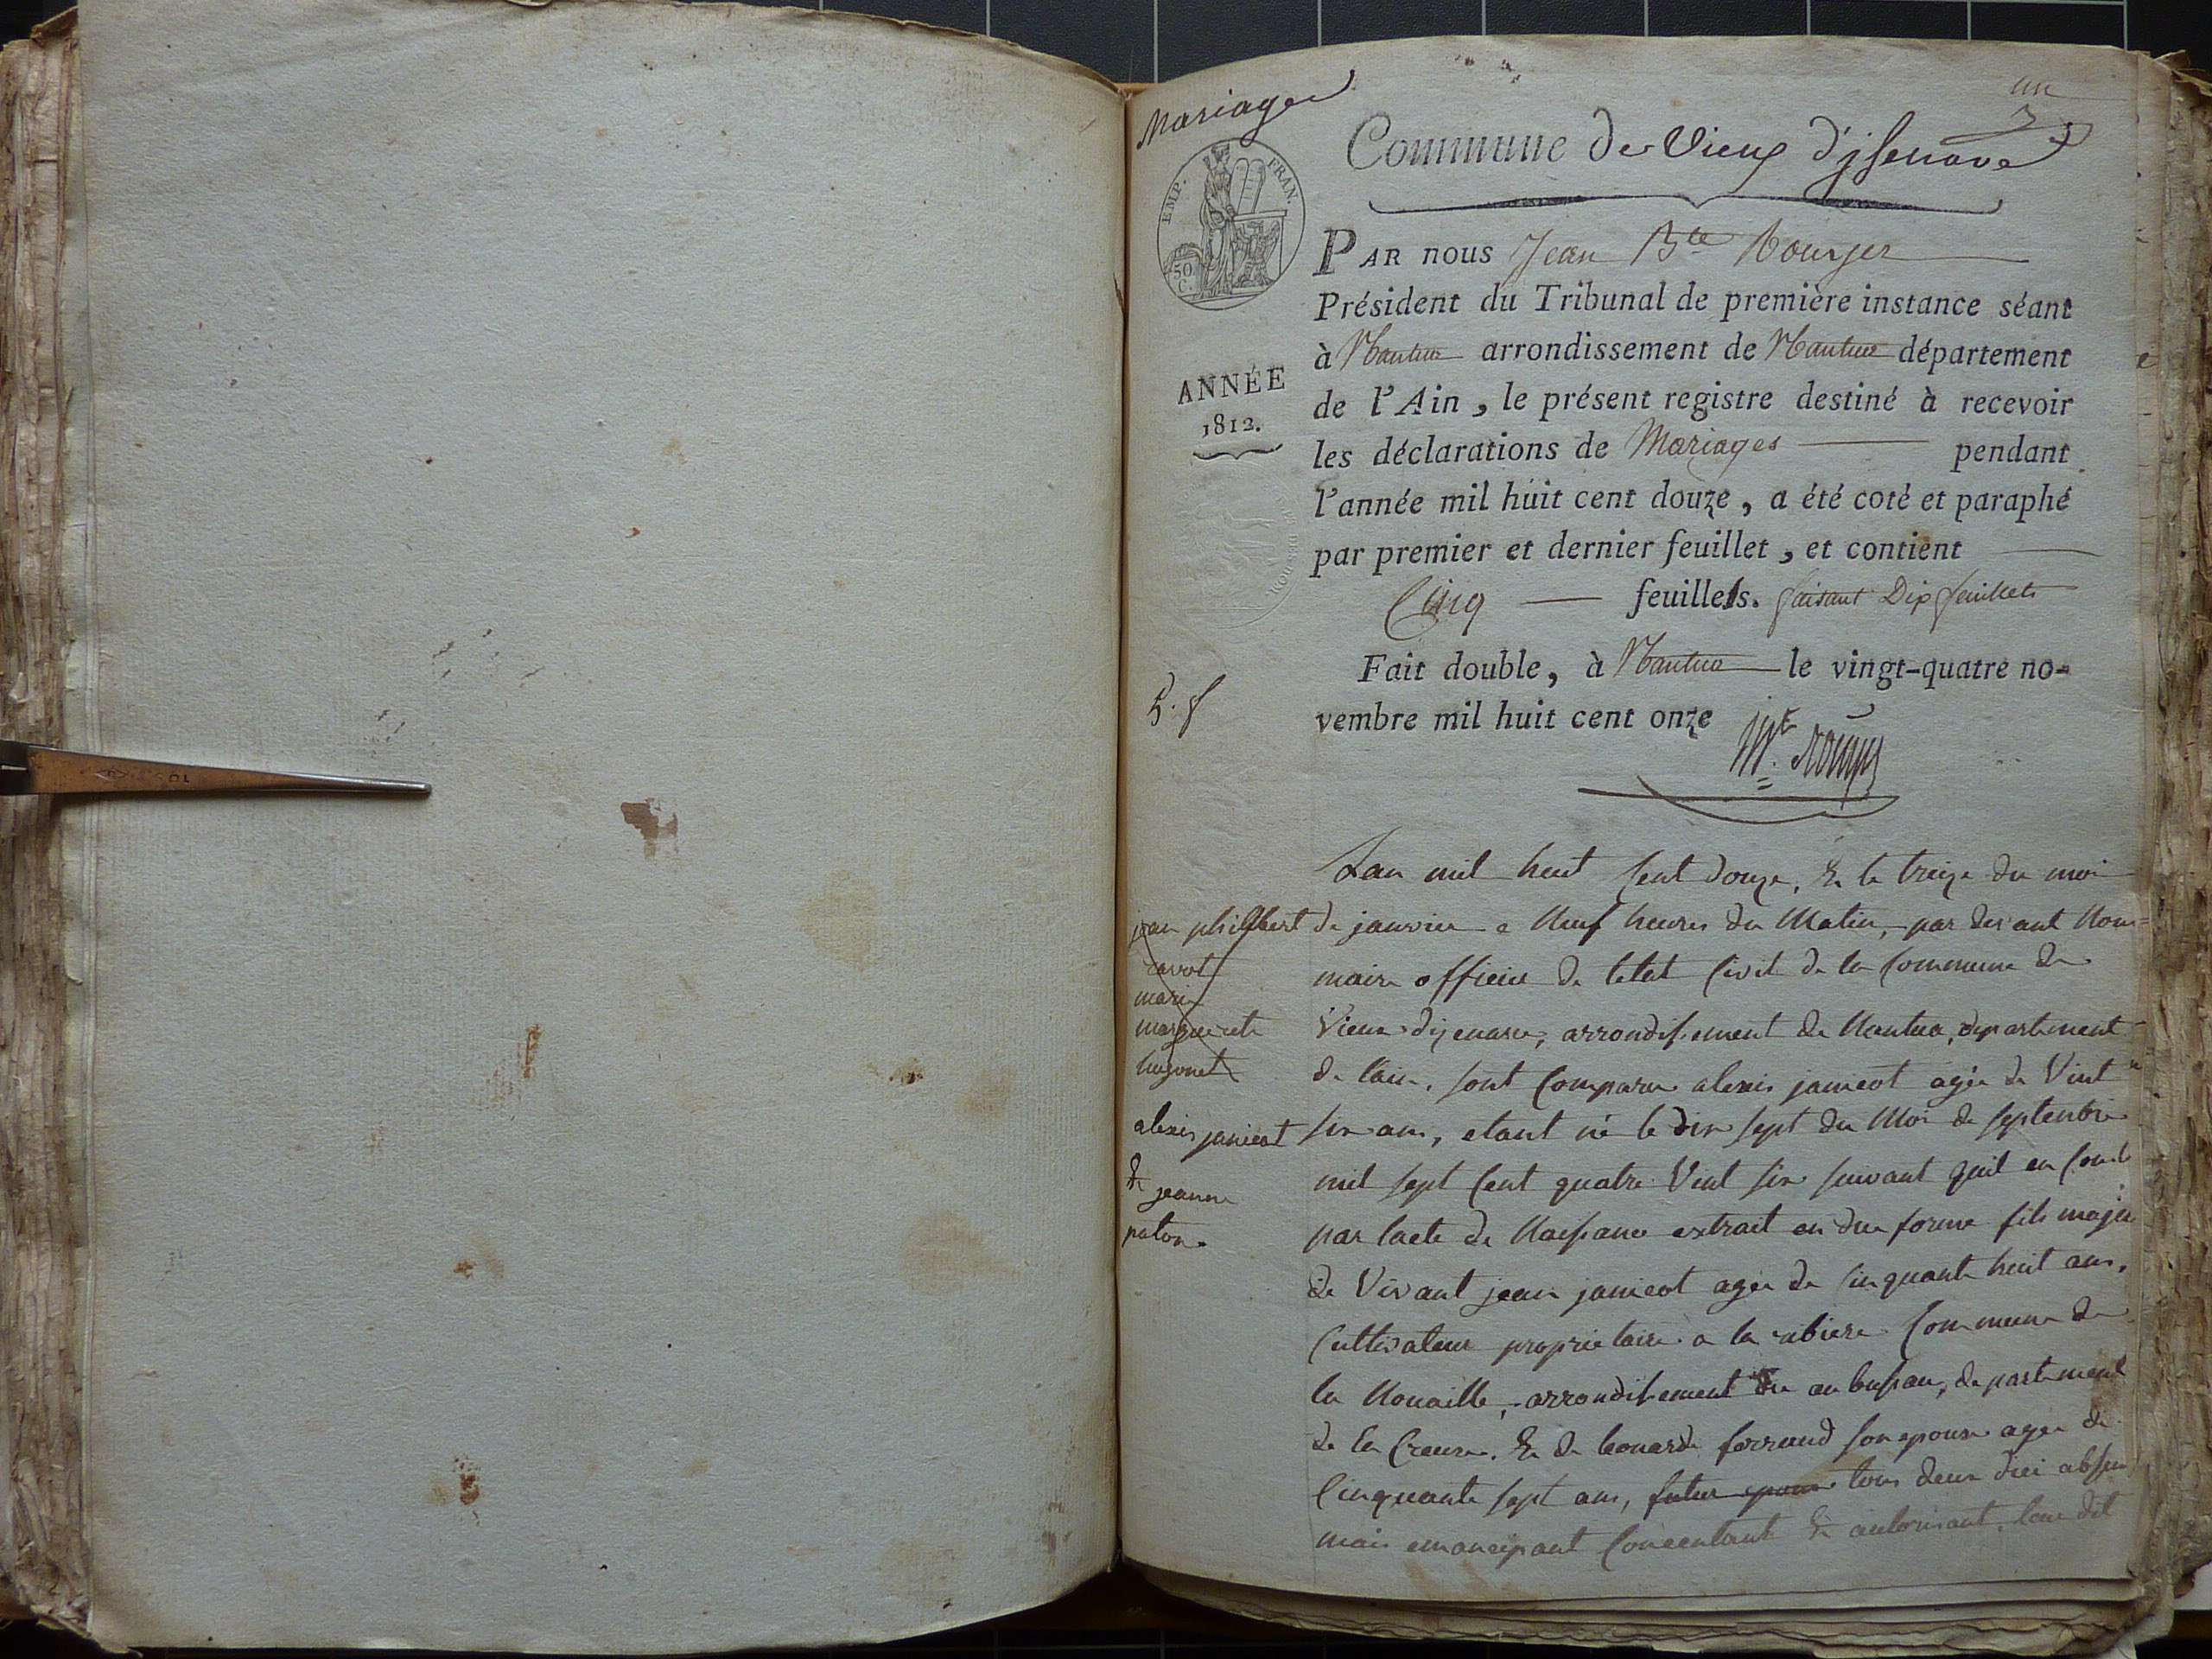 Mariages
un
Commune de Vieux d'jsenave
EMP. FRAN.
50
C.
ANNÉE
1812.
PAR nous Jean Bte
Président du Tribunal de première instance séant
à Nantua arrondissement de Nantua département
de l'Ain, le présent registre destiné à recevoir
les déclarations de Mariages pendant
l'année mil huit cent douze, a été coté et paraphé
par premier et dernier feuillet, et contient
Cinq feuilles. faisant Dix feuillets
Fait double, à Nantua le vingt-quatre no-
vembre mil huit cent onze
5. f
Lan mil huit Cent douze, & le treize du moi
de janvier a Neuf heures du Matin, par devant Nous
maire officier de letat Civil de la Commune de
Vieux dijenave, arrondissement de Nantua, departement
de lain, sont Comparu alexis janicot agée de Vint
six ans, etant né le dix sept du Moi de septembre
mil sept Cent quatre Vint six suivant quil en Conste
par lacte de Naissance extrait en due forme fils majeu
de Vivant jean janicot agee de Cinquante huit ans,
Cultivateur proprietaire a la Commune de
la Nouaille, arrondissement de aubusson, departement
de la Creuse. & de leonarde son epouse agee de
Cinquante sept ans, futur epoux tous deux dici absen
mais emancipant Concentant & autorisant, leur dit
jean philibert
ravot
marie
marguerite
hugonet
alexis janicot
& jeanne
paton.